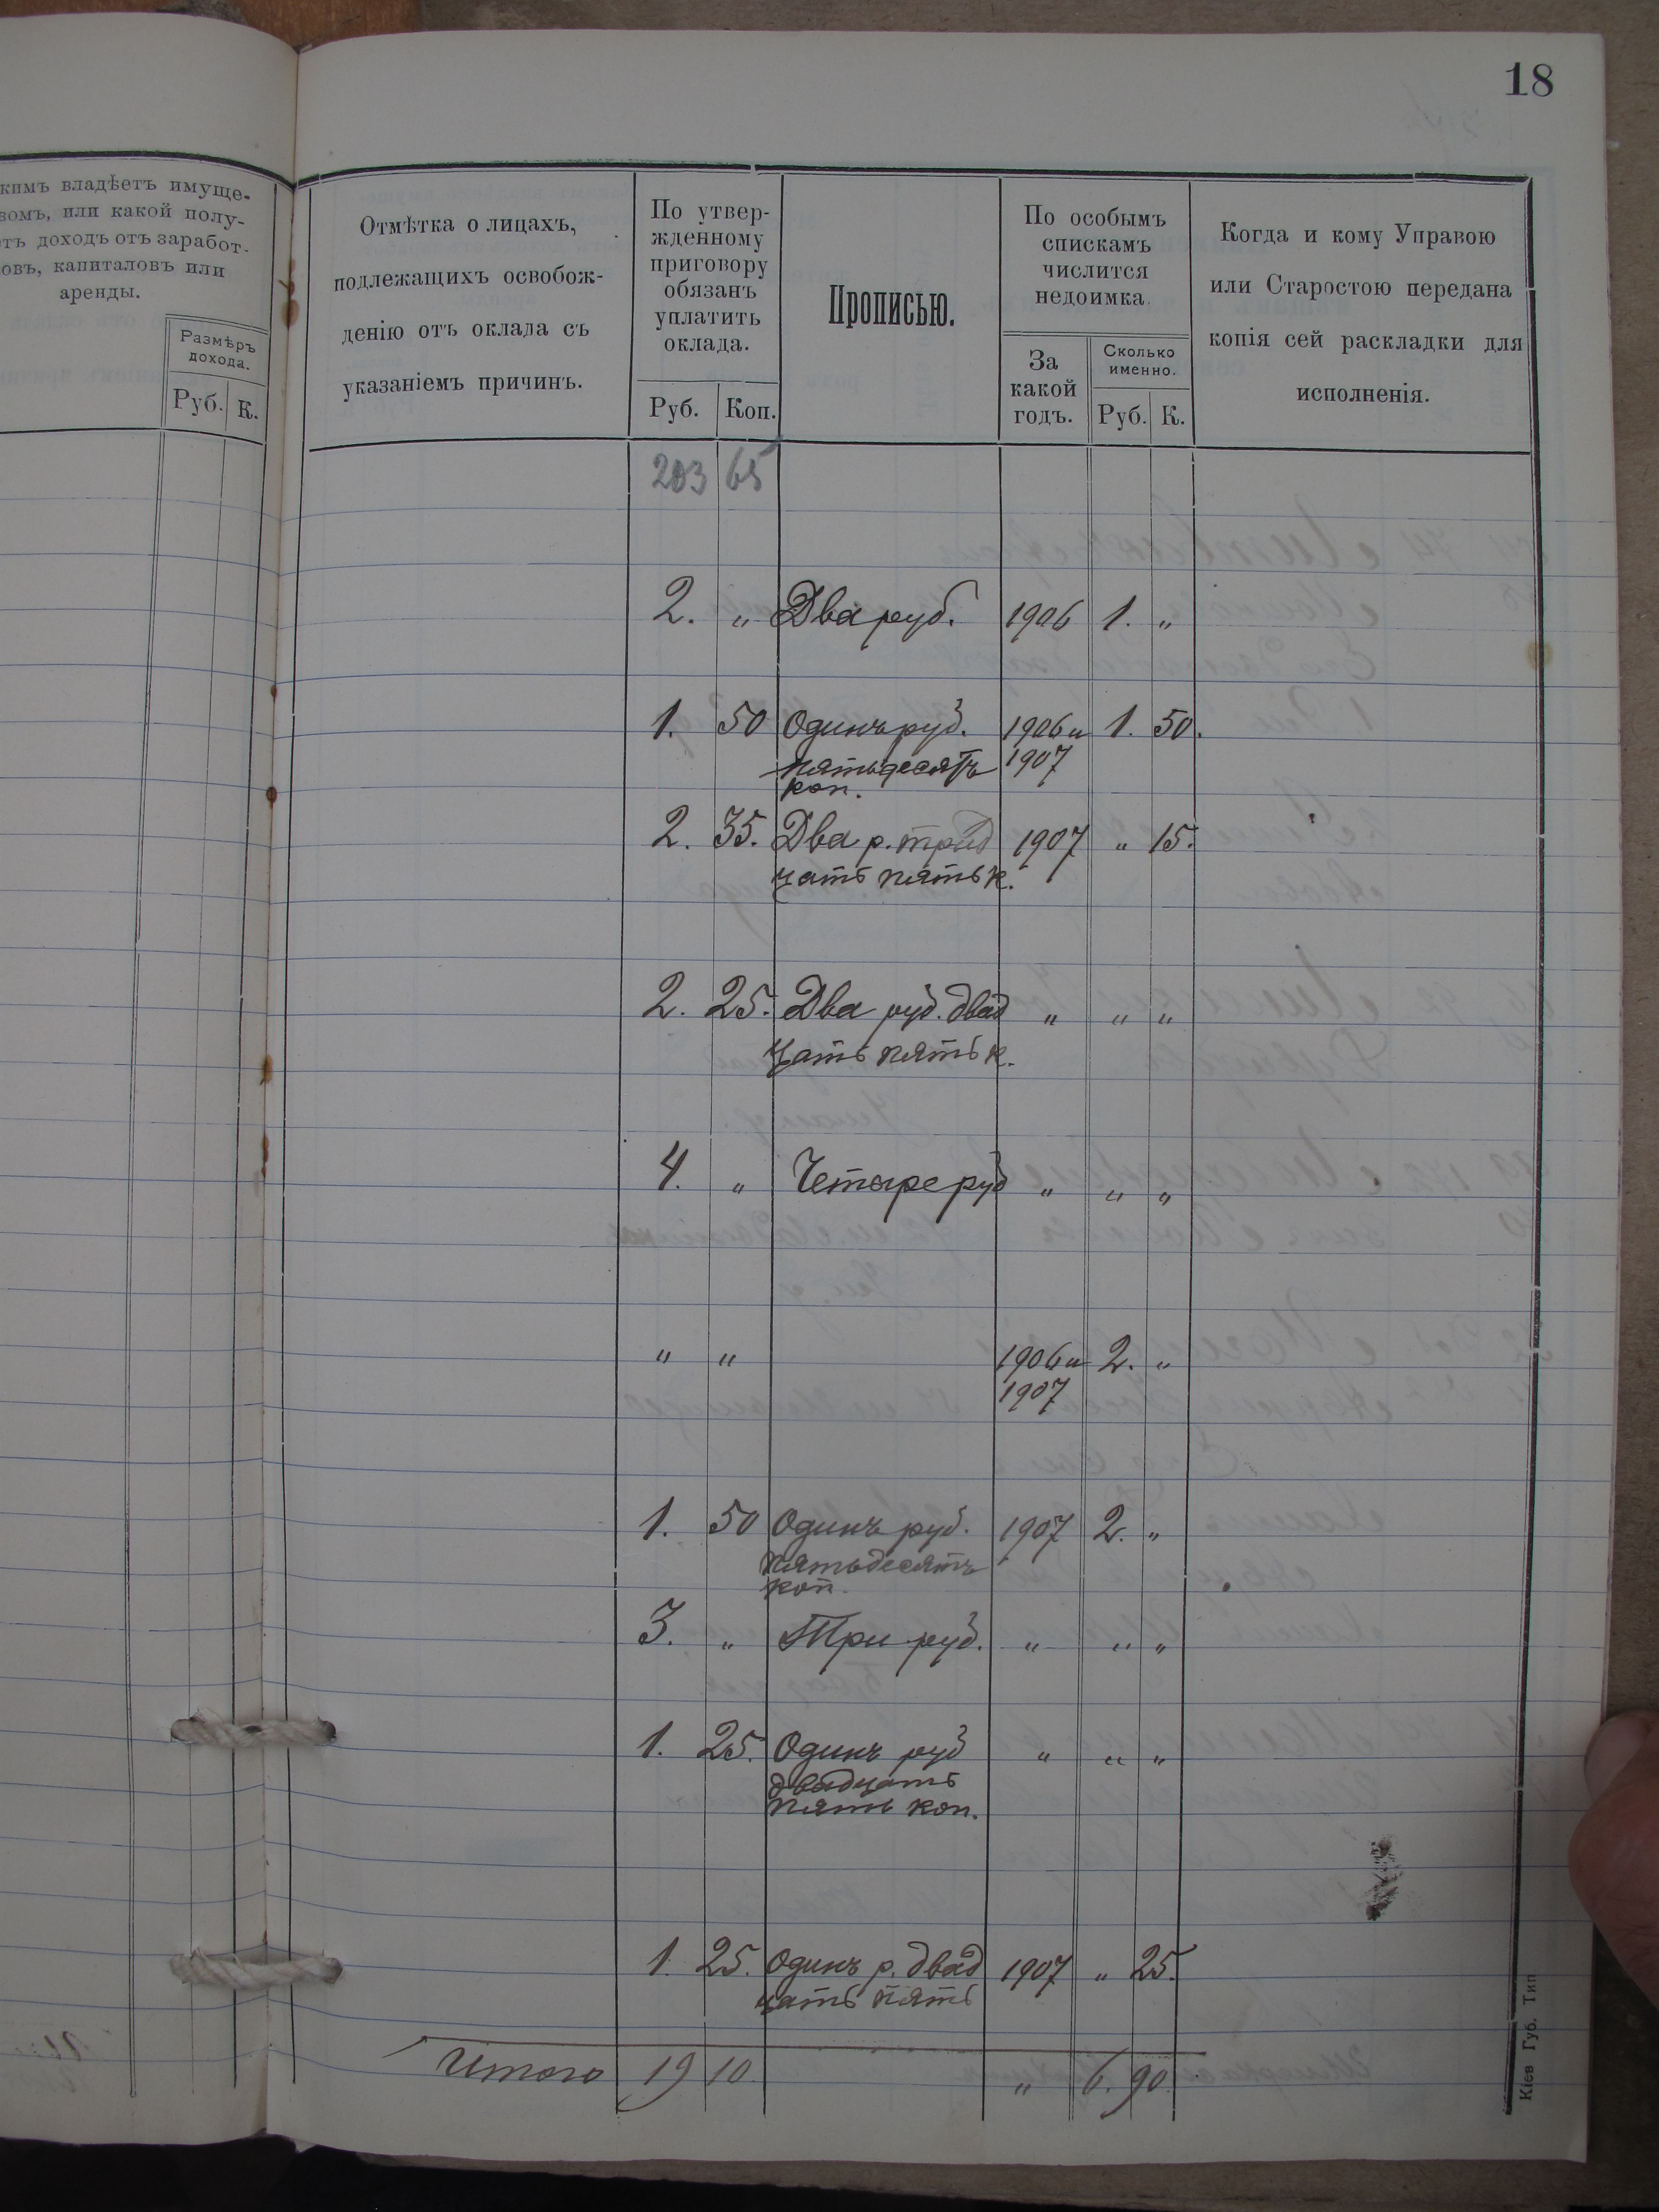 18
кимъ владѣетъ имуще-
вомъ, или какой полу-
етъ доходъ отъ заработ-
овъ, капиталовъ или
аренды.
Размѣръ
дохода.
Руб. К.
Отмѣтка о лицахъ,
подлежащихъ освобож-
денію отъ оклада съ
указаніемъ причинъ.
По утвер-
жденному
приговору
обязанъ
уплатить
оклада.
Руб. Коп.
Прописью.
По особымъ
спискамъ
числится
недоимка.
За
какой
годъ.
Сколько
именно.
Руб. К.
Когда и кому Управою
или Старостою передана
копія сей раскладки для
исполненія.
203 65
2. " Два руб. 1906 1. "
1. 50 Одинъ руб. 1906 и 1. 50.
пятьдесятъ 1907
коп.
2. 35. Два р. трид 1907 " 15.
цать пять к.
2. 25. Два руб. двад " " "
цать пять к.
4. " Четыре руб " " "
" " 1906 и 2. "
1907
1. 50 Одинъ руб. 1907 2. "
пятьдесятъ
коп.
3. " Три руб. " " "
1. 25. Одинъ руб " " "
двадцать
пять коп.
1. 25. Одинъ р. двад 1907 " 25.
цать пять
Итого 19 10 " 6. 90.
Кіев Губ. Тип